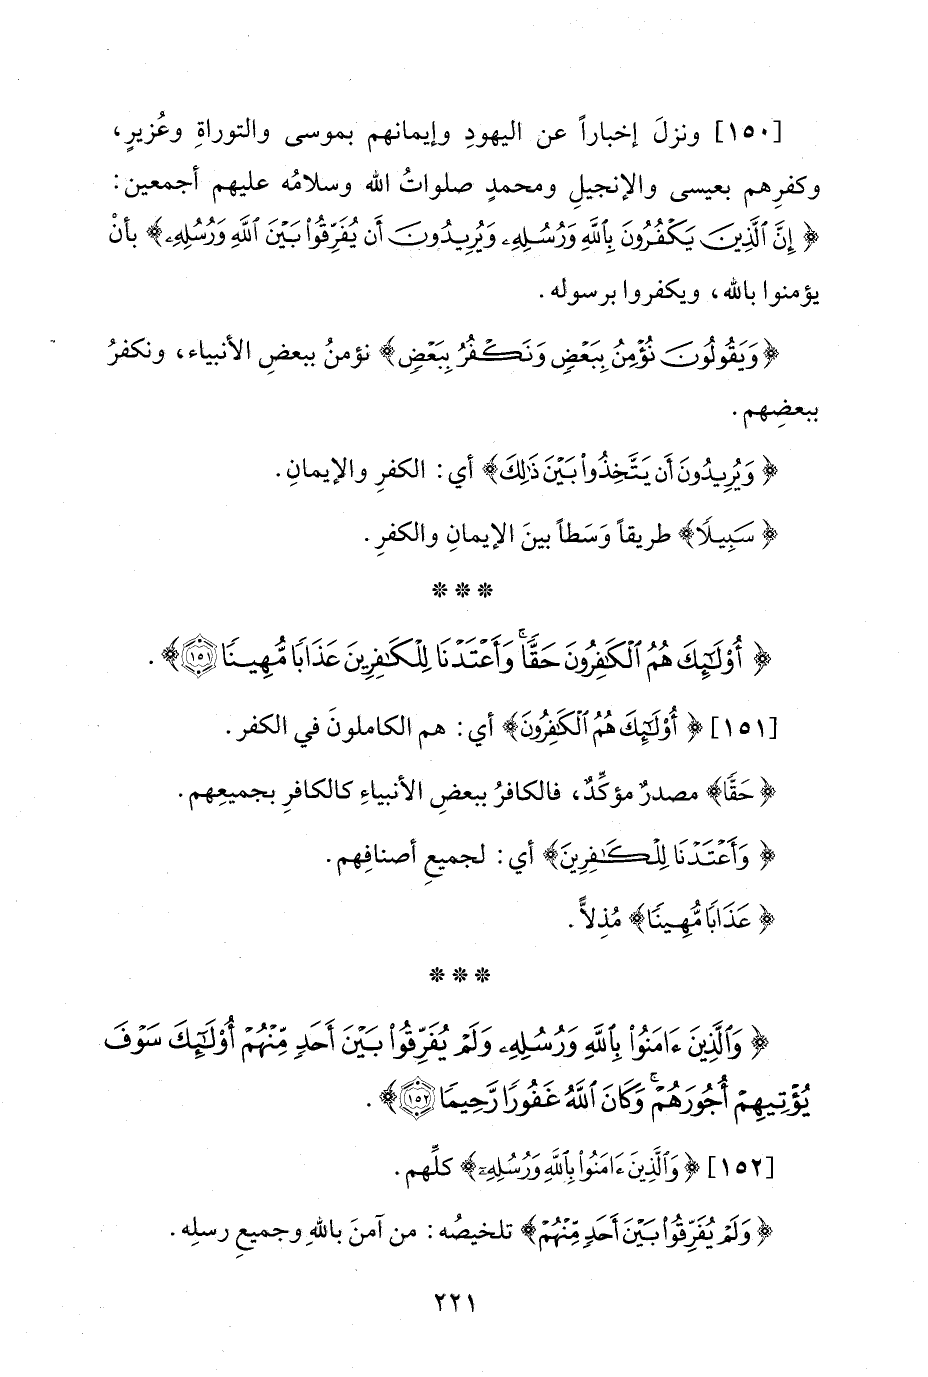 [١٥٠] ونزلَ إخباراً عن اليهودِ وإيمانهم بموسى والتوراةِ وعُزيرٍ،
وكفرِهم بعيسى والإنجيلِ ومحمدٍ صلواتُ الله وسلامُه عليهم أجمعين:
﴿إِنَّ ٱلَّذِينَ يَكْفُرُونَ بِٱللَّهِ وَرُسُلِهِۦ وَيُرِيدُونَ أَن يُفَرِّقُوا۟ بَيْنَ ٱللَّهِ وَرُسُلِهِۦ﴾ بأنْ
يؤمنوا بالله، ويكفروا برسوله.
﴿وَيَقُولُونَ نُؤْمِنُ بِبَعْضٍ وَنَكْفُرُ بِبَعْضٍ﴾ نؤمنُ ببعضِ الأنبياء، ونكفرُ
ببعضِهم.
﴿وَيُرِيدُونَ أَن يَتَّخِذُوا۟ بَيْنَ ذَٰلِكَ﴾ أي: الكفرِ والإيمانِ.
﴿سَبِيلًا﴾ طريقاً وَسَطاً بينَ الإيمانِ والكفرِ.
* * *
﴿أُو۟لَٰٓئِكَ هُمُ ٱلْكَٰفِرُونَ حَقًّا ۚ وَأَعْتَدْنَا لِلْكَٰفِرِينَ عَذَابًا مُّهِينًا ١٥١﴾.
[١٥١] ﴿أُو۟لَٰٓئِكَ هُمُ ٱلْكَٰفِرُونَ﴾ أي: هم الكاملونَ في الكفر.
﴿حَقًّا﴾ مصدرٌ مؤكِّدٌ، فالكافرُ ببعضِ الأنبياءِ كالكافرِ بجميعِهم.
﴿وَأَعْتَدْنَا لِلْكَٰفِرِينَ﴾ أي: لجميعِ أصنافِهم.
﴿عَذَابًا مُّهِينًا﴾ مُذِلاًّ.
* * *
﴿وَٱلَّذِينَ ءَامَنُوا۟ بِٱللَّهِ وَرُسُلِهِۦ وَلَمْ يُفَرِّقُوا۟ بَيْنَ أَحَدٍ مِّنْهُمْ أُو۟لَٰٓئِكَ سَوْفَ
يُؤْتِيهِمْ أُجُورَهُمْ ۚ وَكَانَ ٱللَّهُ غَفُورًا رَّحِيمًا ١٥٢﴾.
[١٥٢] ﴿وَٱلَّذِينَ ءَامَنُوا۟ بِٱللَّهِ وَرُسُلِهِۦ﴾ كلِّهم.
﴿وَلَمْ يُفَرِّقُوا۟ بَيْنَ أَحَدٍ مِّنْهُمْ﴾ تلخيصُه: من آمنَ باللهِ وجميعِ رسلِه.
٢٢١